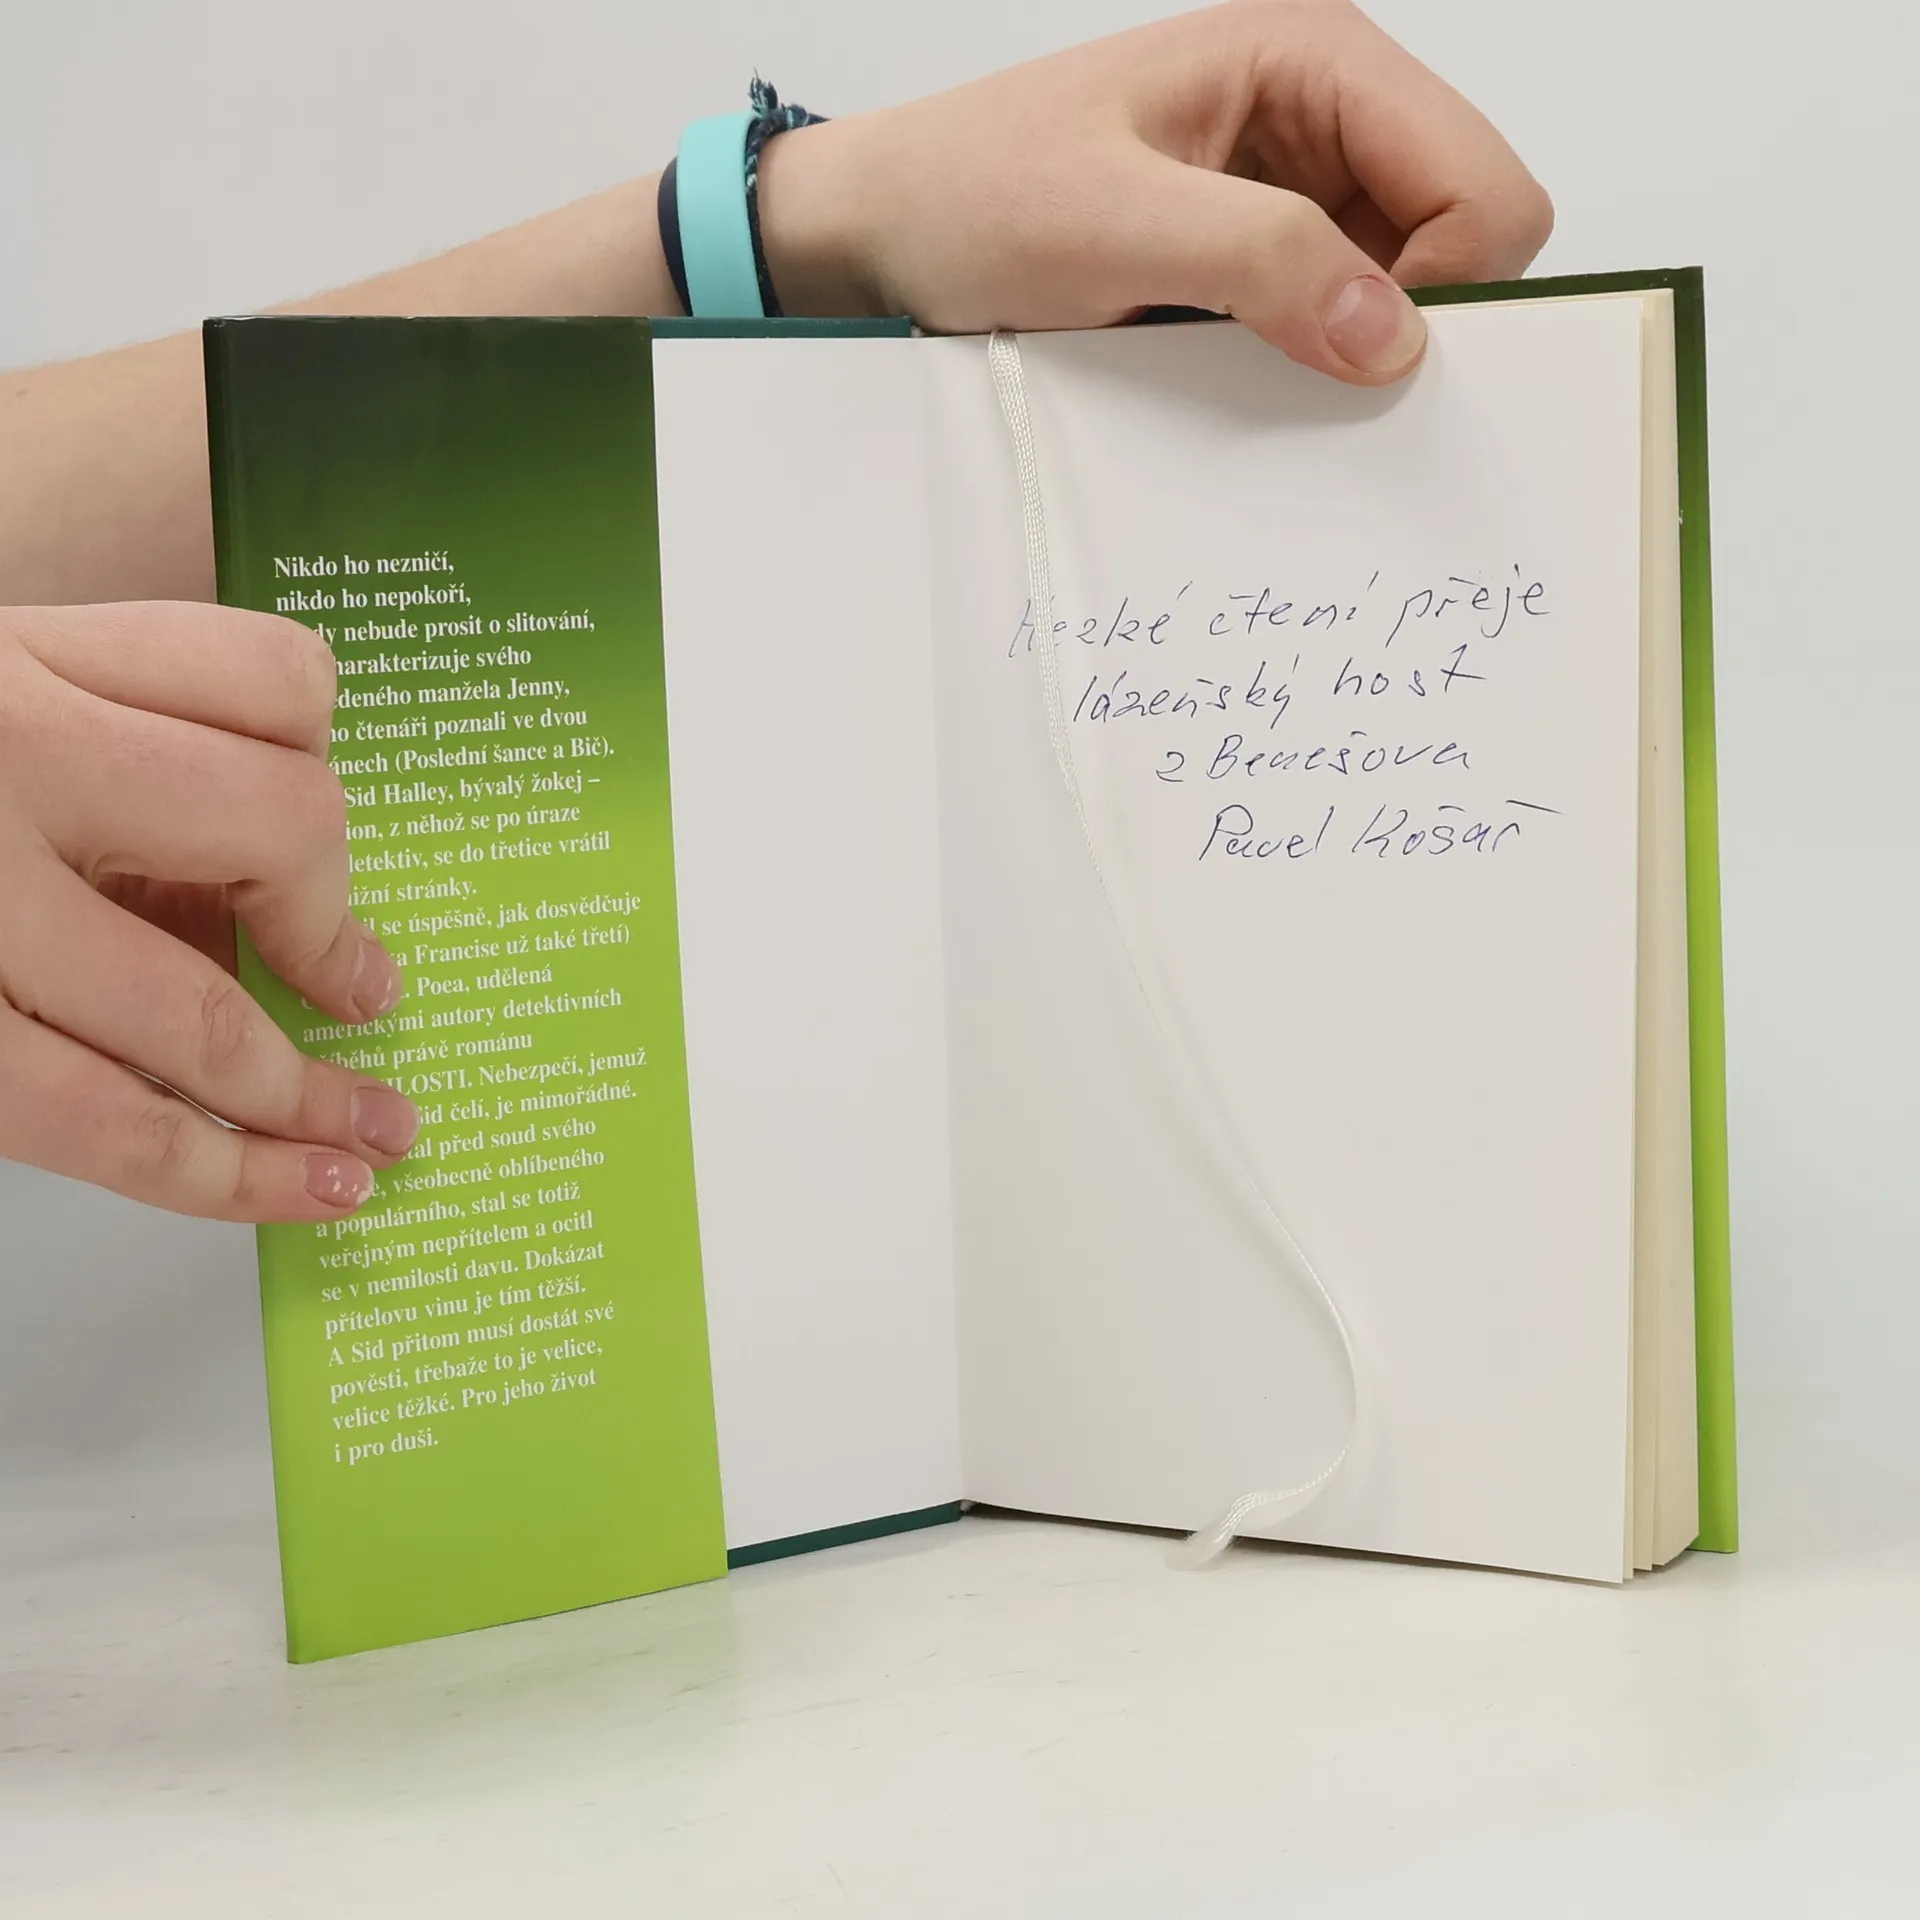 Nikdo ho nezničí,
nikdo ho nepokoří,
nebude prosit o slitování,
svého
manžela Jenny,
čtenáři poznali ve dvou
(Poslední šance a Bič).
Sid Halley, bývalý žokej –
z něhož se po úraze
se do třetice vrátil
stránky.
se úspěšně, jak dosvědčuje
Francise už také třetí)
Poea, udělená
americkými autory detektivních
právě románu
Nebezpečí, jemuž
čelí, je mimořádné.
před soud svého
všeobecně oblíbeného
a populárního, stal se totiž
veřejným nepřítelem a ocitl
se v nemilosti davu. Dokázat
přítelovu vinu je tím těžší.
A Sid přitom musí dostát své
pověsti, třebaže to je velice,
velice těžké. Pro jeho život
i pro duši.
Hezké čtení přeje
lázeňský host
z Benešova
Pavel Košař